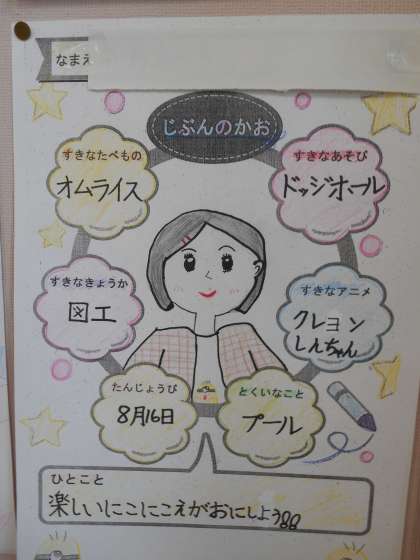 なまえ
じぶんのかお
すきなたべもの
オムライス
すきなあそび
ドッジボール
すきなきょうか
図工
すきなアニメ
クレヨン
しんちゃん
たんじょうび
8月16日
とくいなこと
プール
ひとこと
楽しいにこにこえがおにしよう